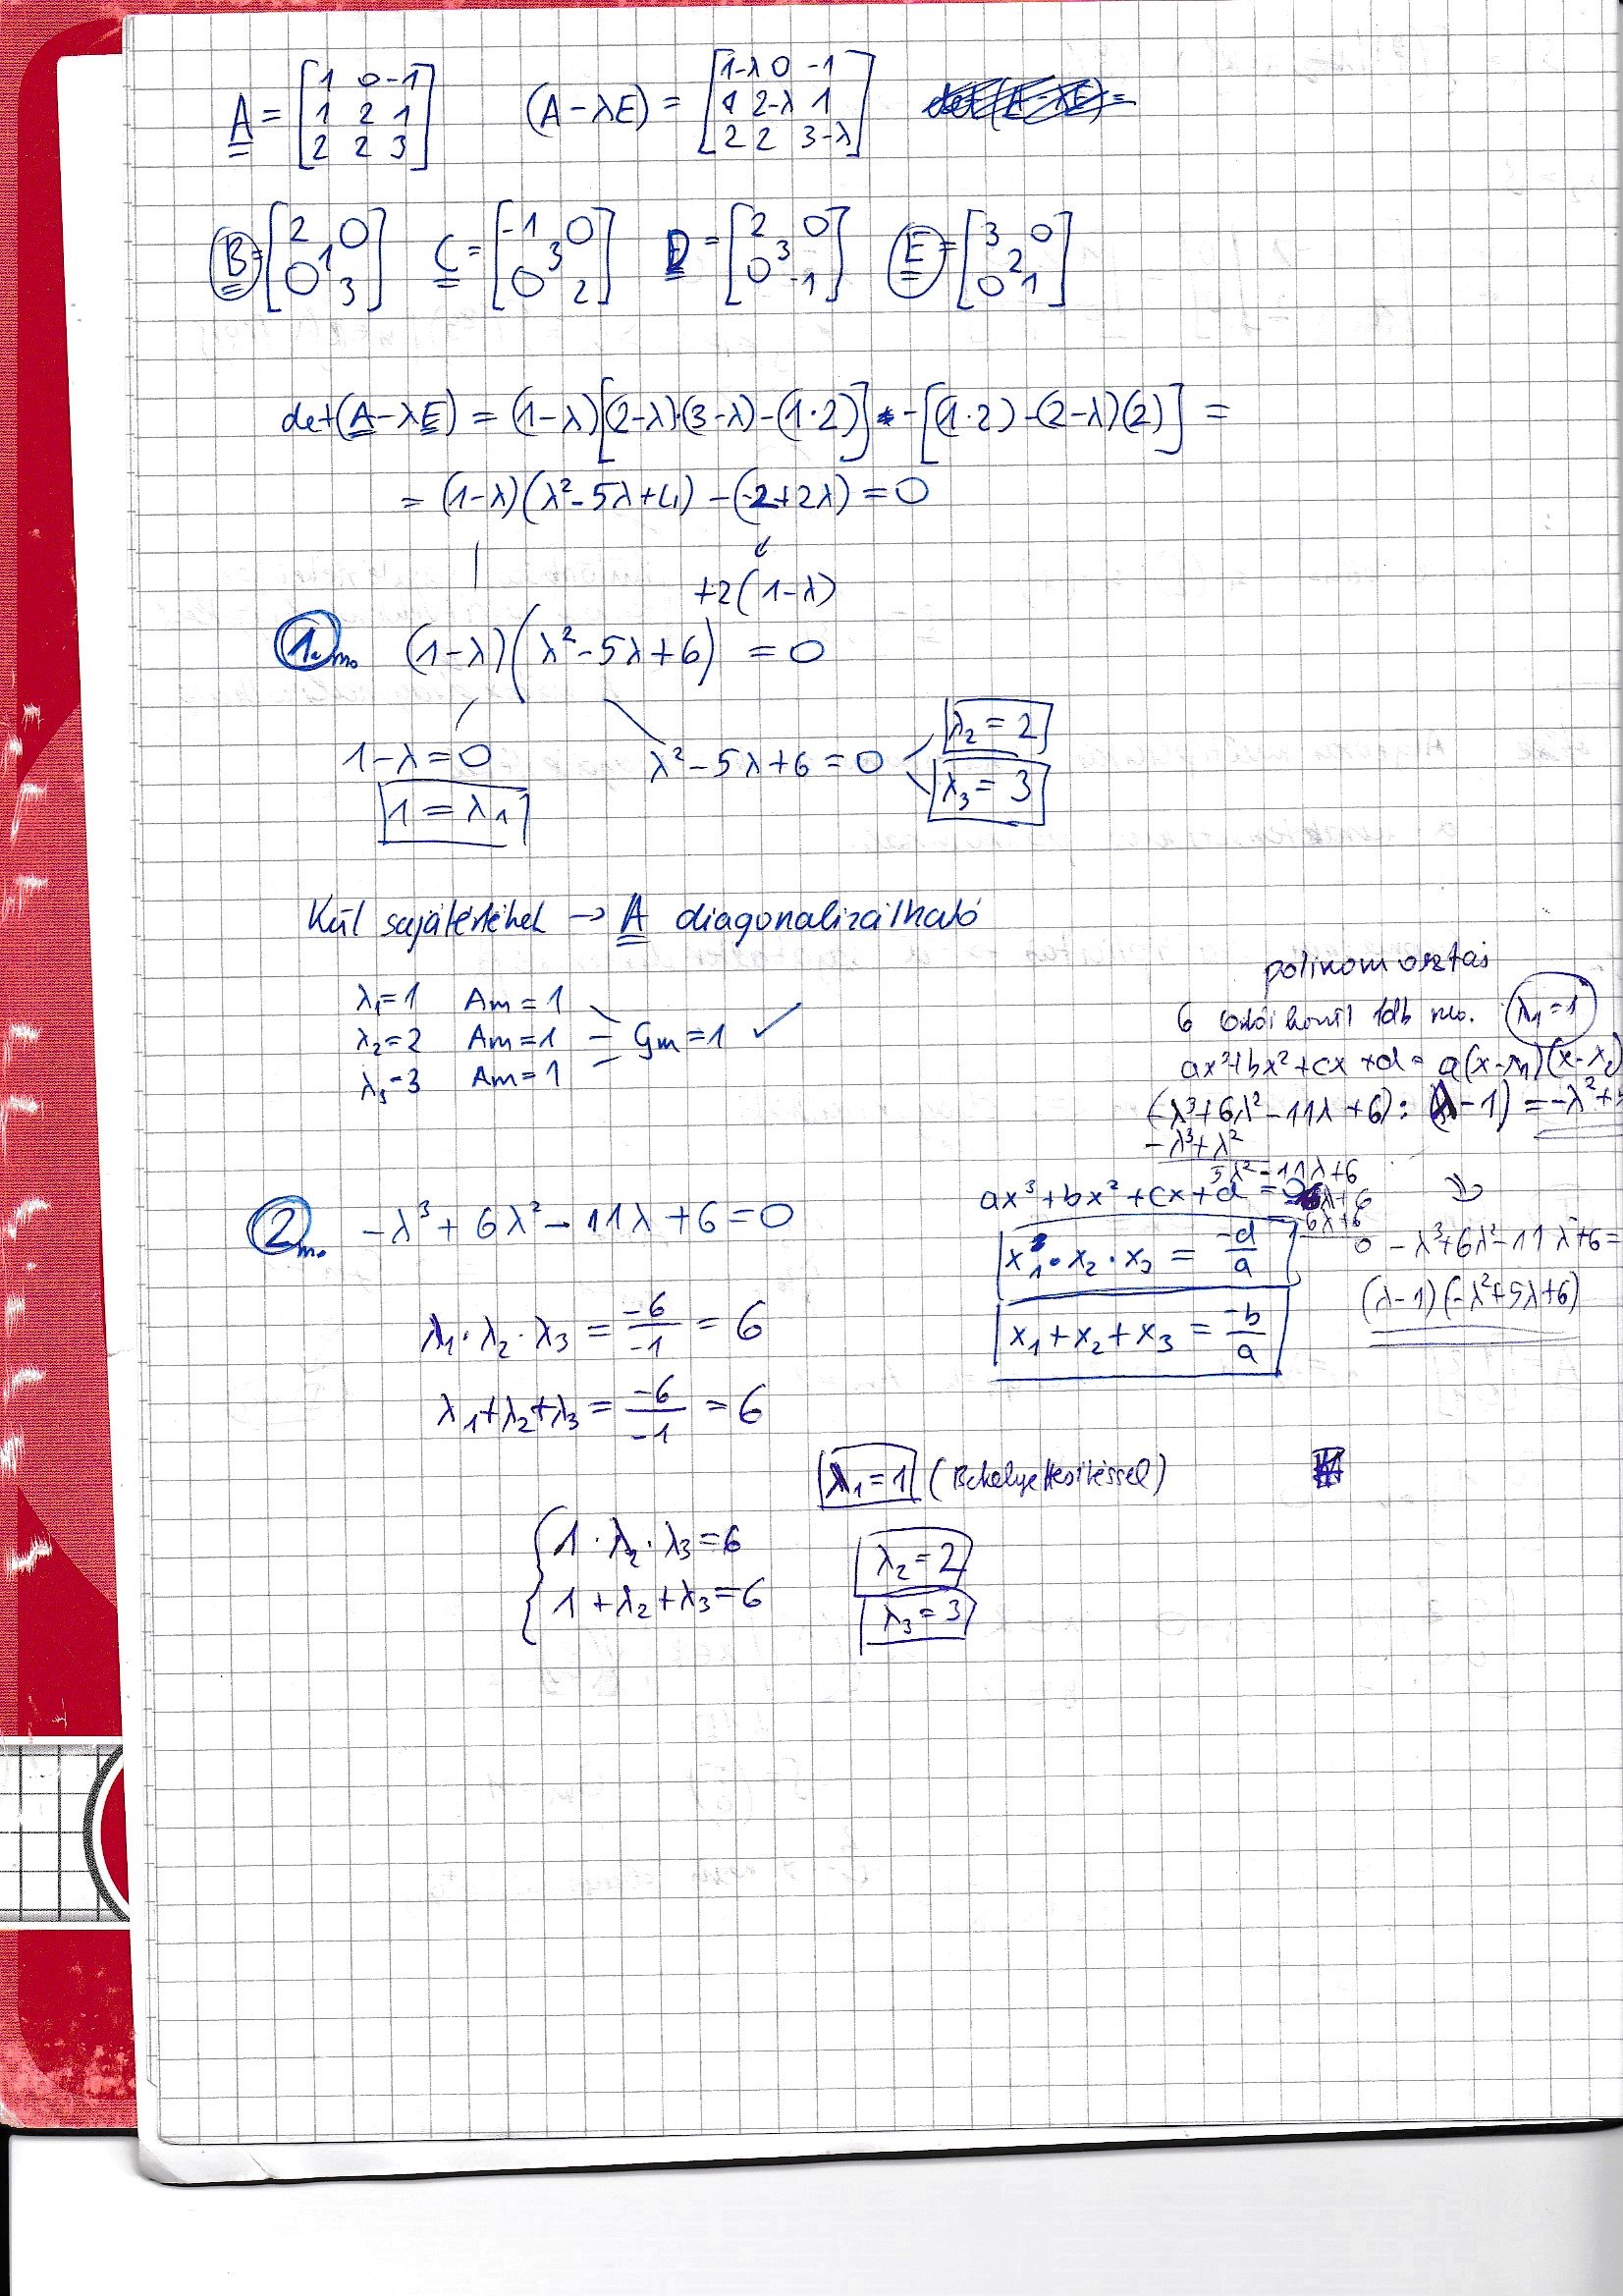 A = [1 0 -1; 1 2 1; 2 2 3] (A - λE) = [1-λ 0 -1; 1 2-λ 1; 2 2 3-λ]
B = [2 0; 1; 0 3] C = [-1 0; 3; 0 2] D = [2 0; 3; 0 -1] E = [3 0; 2; 0 1]
det(A - λE) = (1-λ)[(2-λ)·(3-λ) - (1·2)] - [(1·2) - (2-λ)(2)] =
= (1-λ)(λ² - 5λ + 4) - (-2+2λ) = 0
+2(1-λ)
1. mo. (1-λ)(λ² - 5λ + 6) = 0
1-λ = 0 λ² - 5λ + 6 = 0 λ₂ = 2
1 = λ₁ λ₃ = 3
Kül sajátértékek → A diagonalizálható
λ₁ = 1 Am = 1
λ₂ = 2 Am = 1 = Gm = 1 ✓
λ₃ = 3 Am = 1
polinom osztás
6 osztói közül 1db mo. λ₁ = 1
ax³ + bx² + cx + d = a(x-x₁)(x-x₂)
(-λ³ + 6λ² - 11λ + 6) : (λ - 1) = -λ² + 5
-λ³ + λ²
5λ² - 11λ + 6
-6λ + 6
-6λ + 6
0
-λ³ + 6λ² - 11λ + 6 =
(λ-1)(-λ² + 5λ + 6)
2 mo. -λ³ + 6λ² - 11λ + 6 = 0
ax³ + bx² + cx + d = 0
x₁ · x₂ · x₃ = -d/a
x₁ + x₂ + x₃ = -b/a
λ₁ · λ₂ · λ₃ = -6/-1 = 6
λ₁ + λ₂ + λ₃ = -6/-1 = 6
λ₁ = 1 (Behelyettesítéssel)
{ 1 · λ₂ · λ₃ = 6 λ₂ = 2
1 + λ₂ + λ₃ = 6 λ₃ = 3